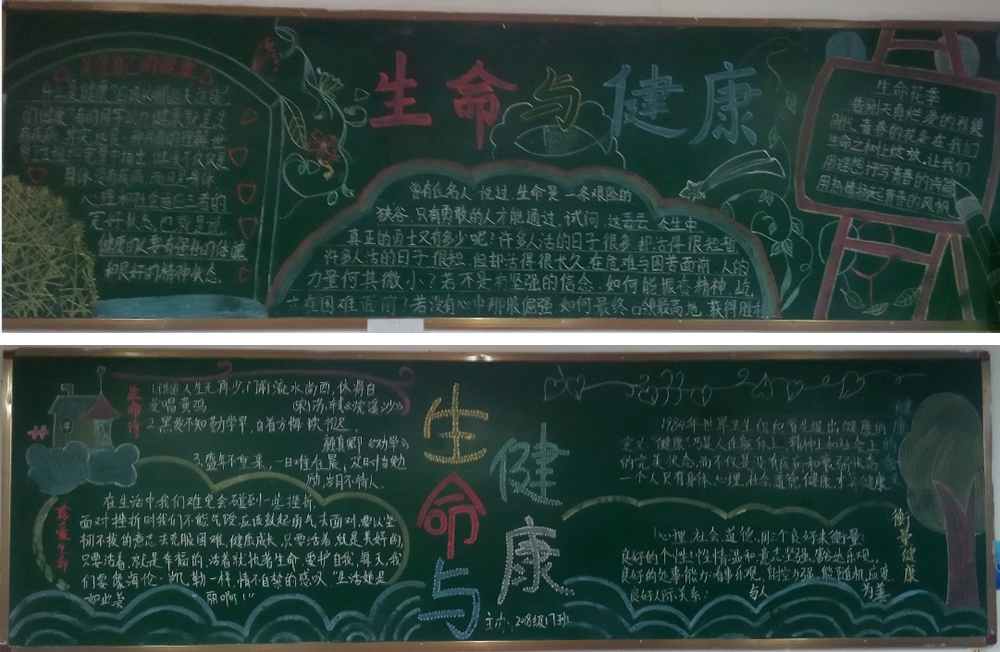 生命与健康
健康的人要有强壮的体魄
和良好的精神状态.
曾有位名人说过生命是一条艰险的
狭谷.只有勇敢的人才能通过.试问,这 人生中
真正的勇士又有多少呢?许多人活的日子很多却活得很短暂
许多人活的日子很短.但却活得很长久.在危难与困苦面前,人的
力量何其微小?若不是有坚强的信念.如何能振奋精神 屹
立在困难面前?若没有心中那股倔强 如何最终占领最高地 获得胜利
生命花季
告别天真烂漫的孩提
时代.青春的花朵在我们
生命之树上绽放,让我们
用理想抒写青春的诗篇
用热情扬起青春的风帆
生命诗
1. 人生无再少,门前流水尚西,休将白
发唱黄鸡. (宋)苏轼《浣溪沙》
2.黑发不知勤学早,白首方悔读书迟.
颜真卿《劝学》
3.盛年不重来,一日难再晨,及时当勉
励,岁月不待人.
珍爱生命
在生活中,我们难免会碰到一些挫折,
面对挫折时我们不能气馁,应该鼓起勇气去面对,要以坚
韧不拔的意志去克服困难,健康成长,只要活着,就是美好的,
只要活着,就是幸福的,活着就执著生命,爱护自我,每天,我
们要像海伦·凯勒一样,情不自禁的感叹"生活是
如此美丽啊!"
生命与健康
主办:2018级17班
1984年世界卫生组织首先提出健康的
定义"健康"乃是人在躯体上、精神上和社会上
的完美状态,而不仅是没有疾病和衰弱状态.
一个人只有身体、心理、社会道德健康,才算健康
衡量健康
心理、社会道德,用三个良好来衡量:
良好的个性:性情温和意志坚强,豁达乐观.
良好的处事能力:看事乐观,自控力强,能随机应变
良好人际关系: 与人为善